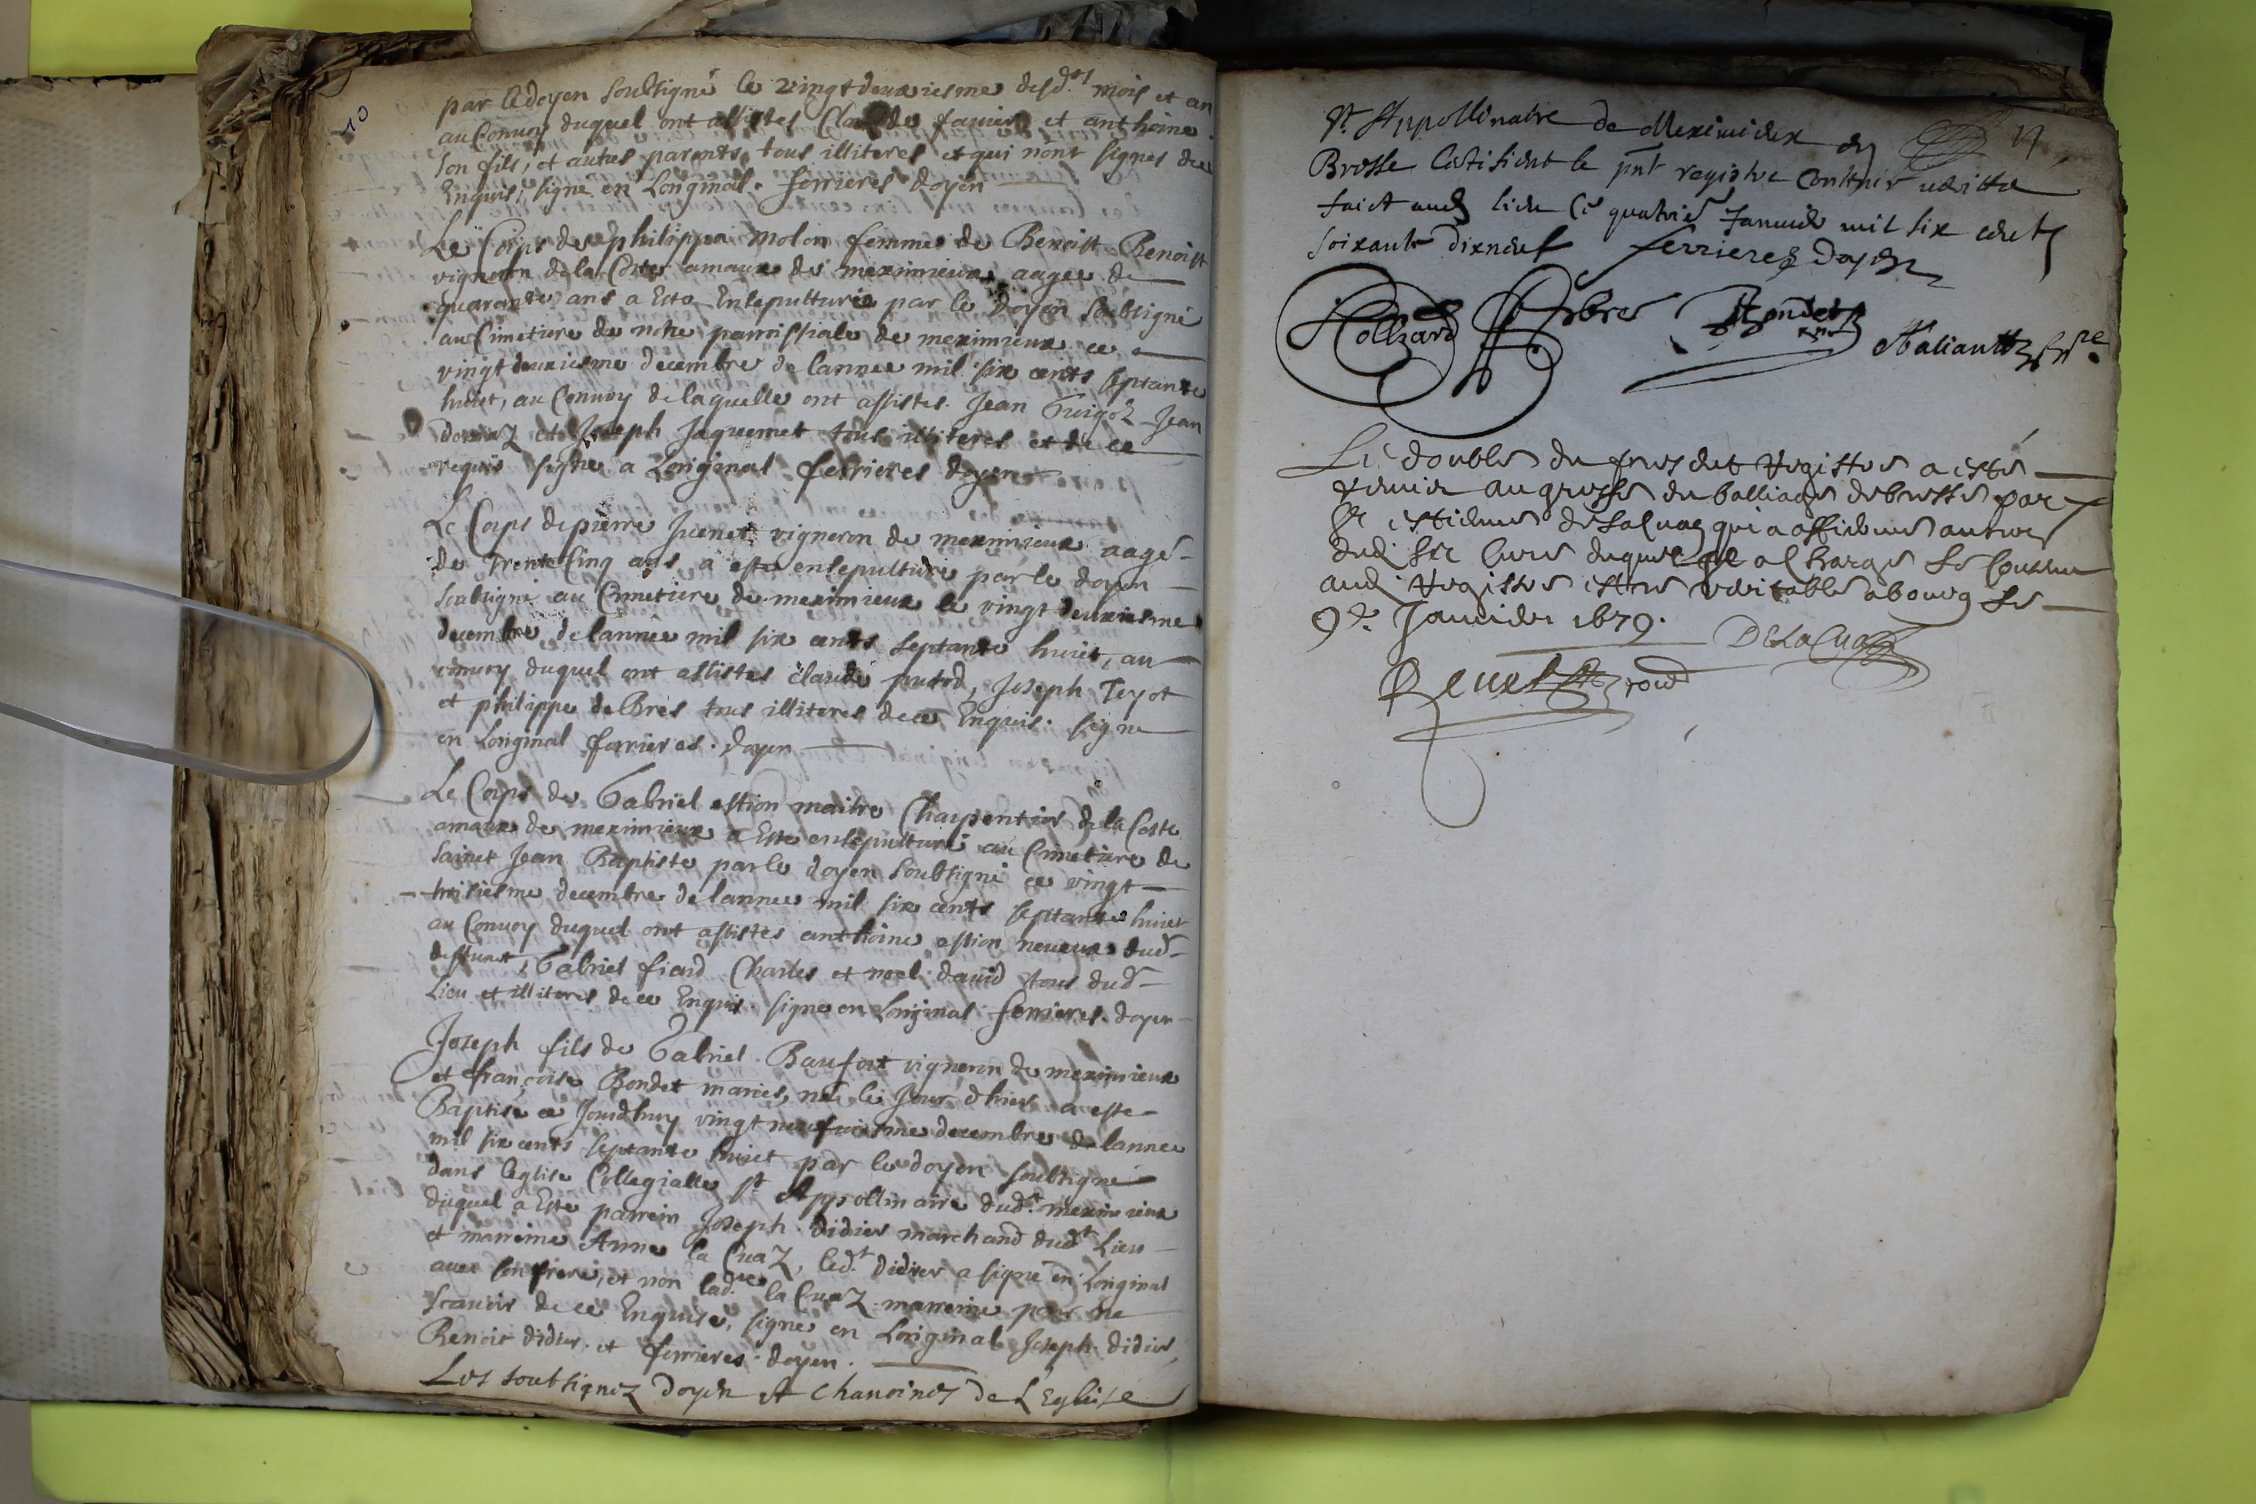 par le doyen soubsigné le vingt deuxiesme desd.ts mois et an
au Convoy duquel ont assistes Claude favier et anthoine
son fils, et autres parents tous illiteres et qui n'ont signes de ce
Enquis, signe en Loriginal. ferrieres doyen
Le Corps de philippa molon femme de Benoist Benoist
vigneron de la Coste amaux de meximieux aagée de
quarante ans a Esté Ensepulturée par le doyen soubsigné
au Cimetiere de notre parroissiale de meximieux ce
vingt deuxiesme decembre de lannee mil six cents septante
huict, au Convoy de laquelle ont assistes Jean Guigoz Jean
et Joseph Jaquemet tous illiteres et de ce
requis signe a Loriginal ferrieres doyen
Le Corps de pierre Juenet vigneron de meximieux aagé
de Trente Cinq ans a esté ensepulturé par le doyen
soubsigné au Cimetiere de meximieux le vingt deuxiesme
decembre de lannee mil six cents septante huict, au
convoy duquel ont assistes claude, Joseph Teyot
et philippe de Bres tous illiteres de ce Enquis. signe
en Loriginal ferrieres. doyen
Le Corps de Gabriel estion maitre Charpentier de la Coste
amaux de meximieux a Esté ensepulturé au Cimetiere de
Sainct Jean Baptiste par le doyen soubsigné ce vingt
troisiesme decembre de lannee mil six cents septante huict
au Convoy duquel ont assistes anthoine estion neveux dud.
deffunct, Gabriel fiard Charles et noel david tous dud.
Lieu et illiteres de ce Enquis. signe en Loriginal ferrieres. doyen
Joseph fils de Gabriel Baufort vigneron de meximieux
et françoise Bondet maries, né le Jour d'hier a esté
Baptisé ce Jourdhuy vingt neufviesme decembre de lannee
mil six cents septante huict par le doyen soubsigné
dans leglise Collegialle st Appollinaire dud.t meximieux
duquel a Esté parrein Joseph didier marchand dud.t Lieu
et marreine Anne la Cuaz, led.t didier a signé en Loriginal
avec son frere, et non lad. la Cuaz marreine pour ne
scavoir de ce Enquise, signe en Loriginal Joseph didier,
Benoit didier. et ferrieres. doyen.
Les soubsignez doyen et chanoines de L'Eglise
St Appollinaire de Meximieux en
Bresse Certifient le pnt registre Contenir veritte
faict aud lieu Ce quatrie Janvier mil six cents
soixante dixneuf ferrieres doyen
Le double du susdit Registre a esté
remis au greffe du balliage de bresse par
Sr estienne de LaCuaz qui a affirmé au nom
dud Sr Curé duquel il a Charge Le Contenu
aud Registre estre veritable a bourg Le
9e. Janvier 1679.
DeLaCuaz